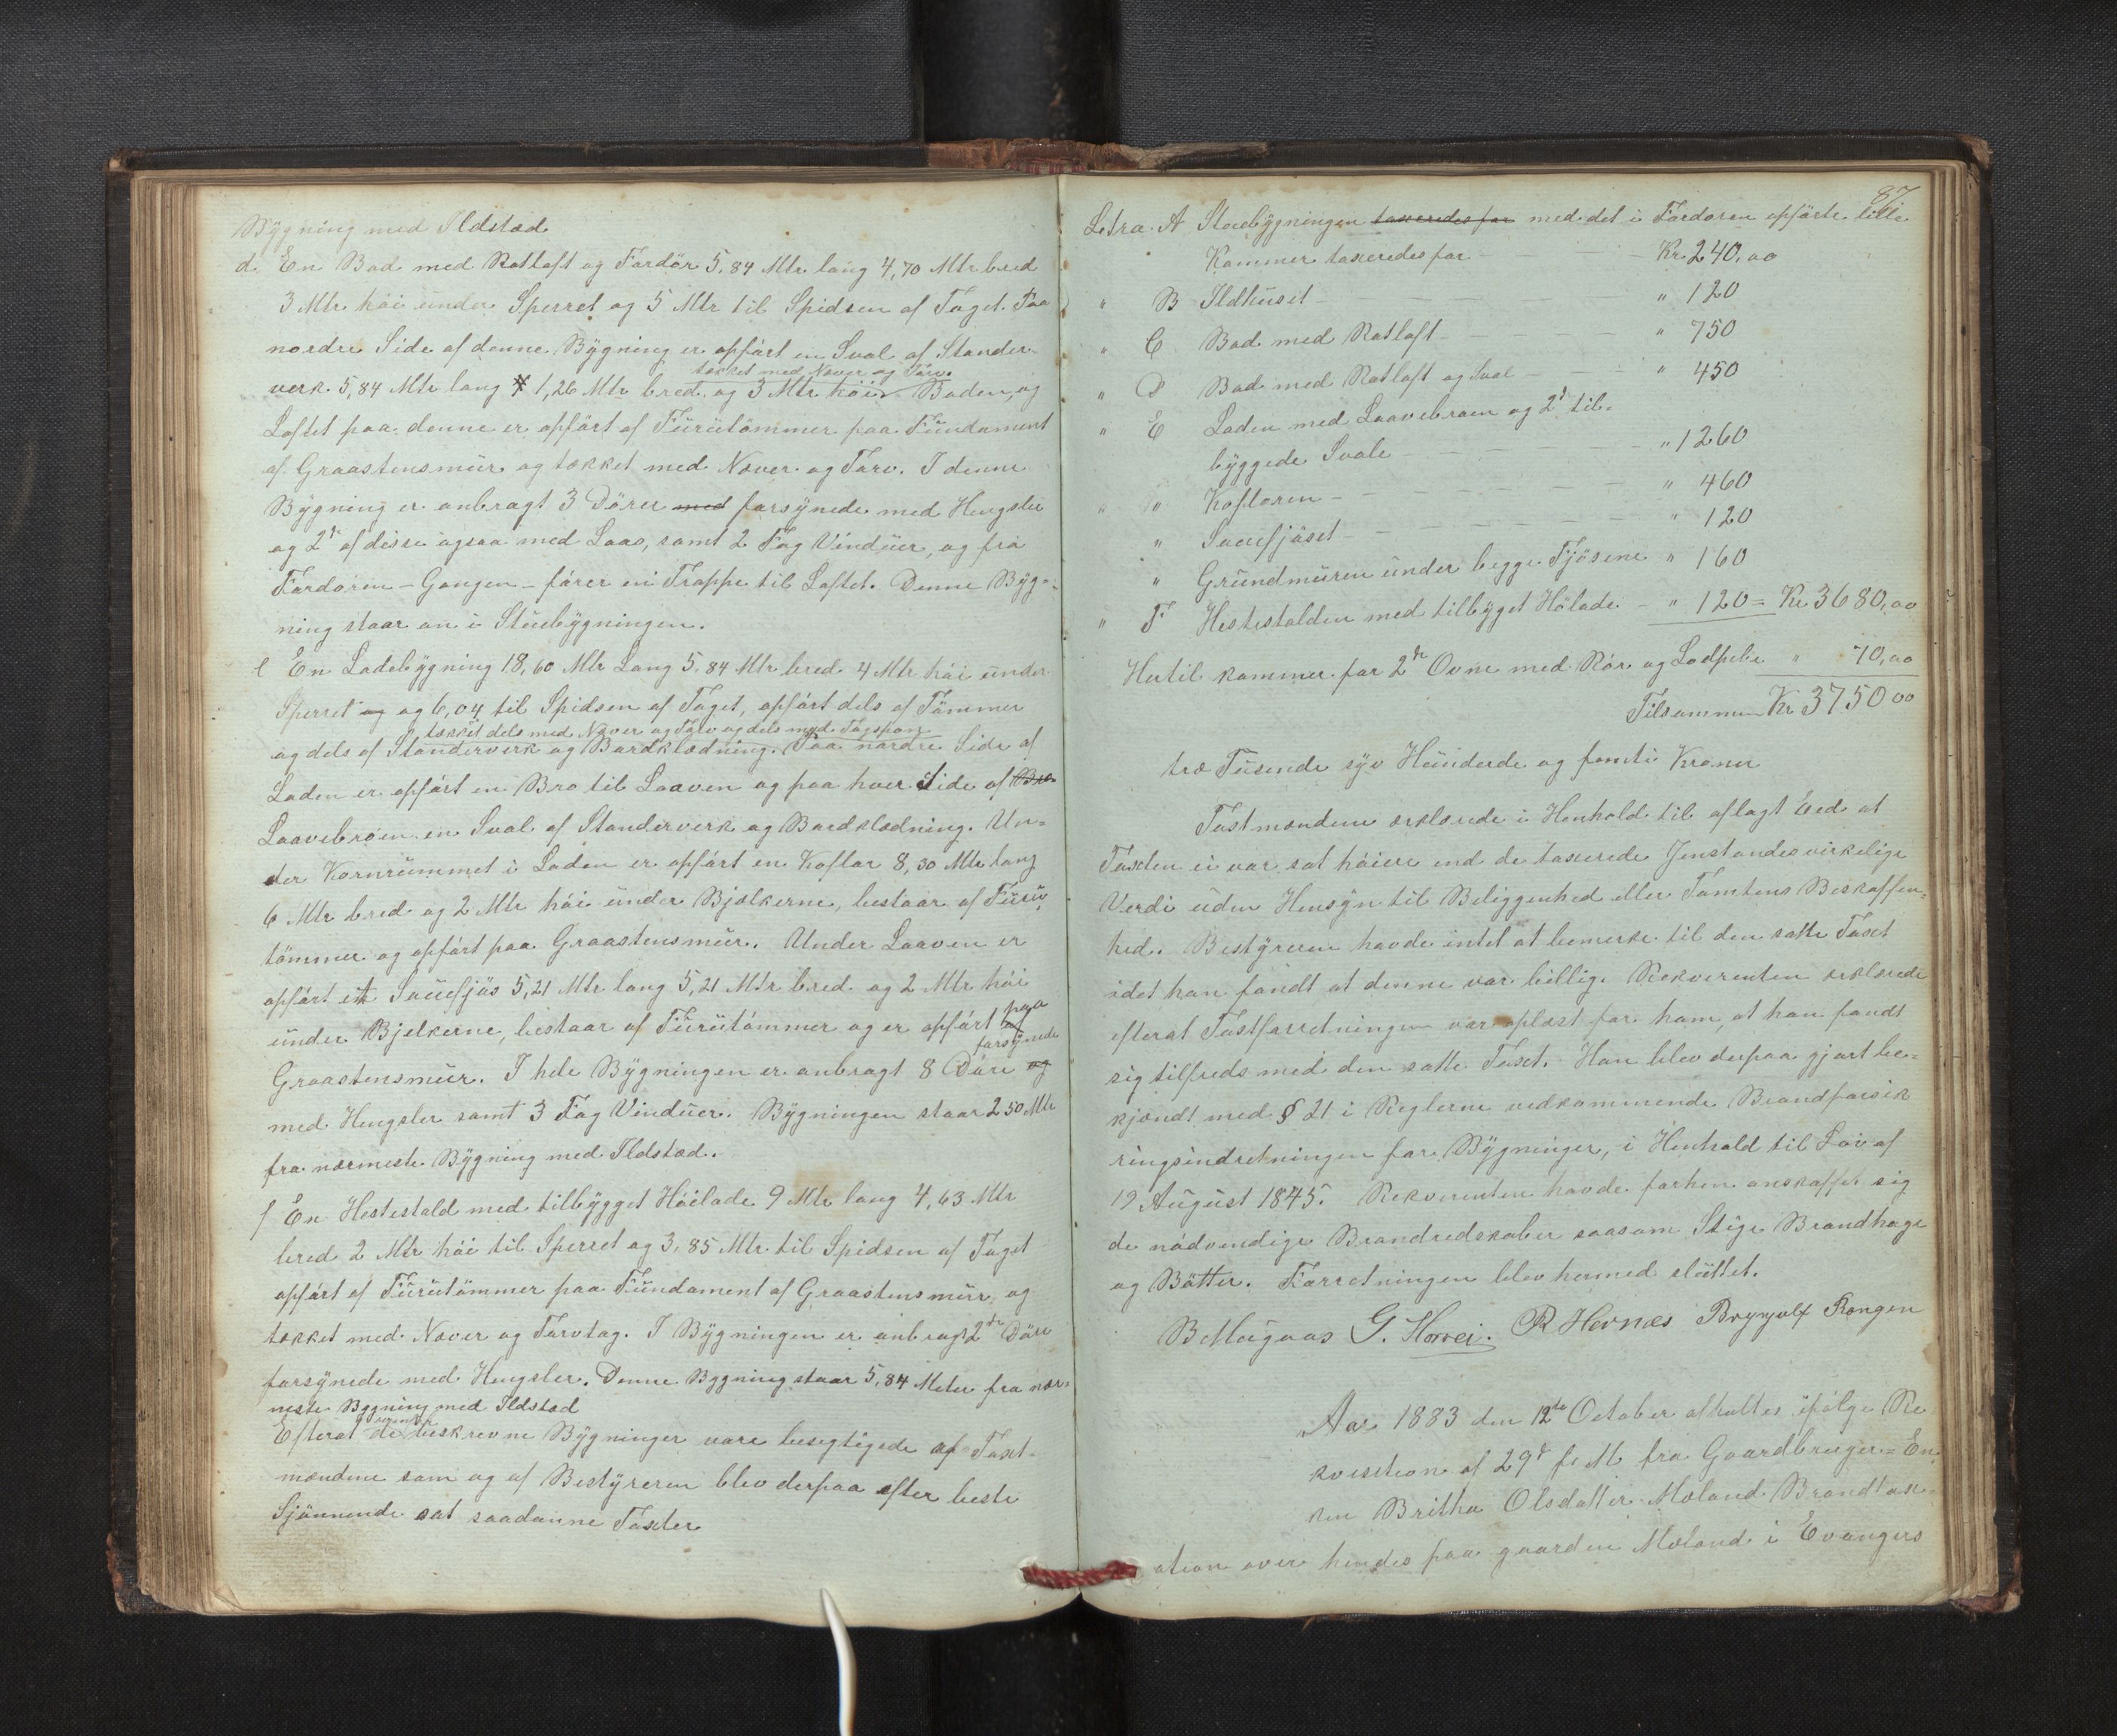 Bygning med Ildsted
d. En Bod med Rotloft og Fordör 5,84 Mtr lang 4,70 Mtr bred
3 Mtr höi under Sperret og 5 Mtr til Spidsen af Taget. Paa
nordre Side af denne Bygning er opfört en Sval af Stander-
tækket med Næver og Törv.
verk 5,84 Mtr lang 1,26 Mtr bred og 3 Mtr höi. Boden, og
Loftet paa denne er opfört af Furutömmer paa Fundament
af Graastensmur og tækket med Næver og Törv. I denne
Bygning er anbragt 3 Dörer med forsynede med Hengsler
og 2de af disse ogsaa med Laas, samt 2 Fag Vinduer, og fra
Fordören - Gangen - förer en Trappe til Loftet. Denne Byg-
ning staar an i Stuebygningen.
e En Ladebygning 18,60 Mtr Lang 5,84 Mtr bred 4 Mtr höi under
Sperret og og 6,04 til Spidsen af Taget, opfört dels af Tömmer
tækket dels med Næver og Tölv og dels med Tagspon
og dels af Standerverk og Bordklædning. Paa nordre Side af
Laden er opfört en Bro til Laaven og paa hver Side af Bro
Laavebroen en Sval af Standerverk og Bordklædning. Un-
der Kornrummet i Laden er opfört en Koflor 8,30 Mtr lang
6 Mtr bred og 2 Mtr höi under Bjelkerne, bestaar af Furu
tömmer og opfört paa Graastensmur. Under Laaven er
opfört et Sauefjös 5,21 Mtr lang 5,21 Mtr bred og 2 Mtr höi
under Bjelkerne, bestaar af Furutömmer og er opfört paa
forsynede
Graastensmur. I hele Bygningen er anbragt 8 Döre og
med Hengsler samt 3 Fag Vinduer. Bygningen staar 2 50 Mtr
fra nærmeste Bygning med Ildsted.
f En Hestestald med tilbygget Höilade 9 Mtr lang 4,63 Mtr
bred 2 Mtr höi til Sperret og 3,85 Mtr til Spidsen af Taget
opfört af Furutömmer paa Fundament af Graastensmur og
tækket med Næver og Törvtag. I Bygningen er anbragt 2de Döre
forsynede med Hengsler. Denne Bygning staar 5,84 Meter fra nær-
meste Bygning med Ildsted
Efterat de beskrevne Bygninger vare besigtigede af Taxt-
mændene som og af Bestyreren blev derpaa efter beste
Skjönnende sat saadanne Taxter
87
Letra A Stuebygningen taxeredes for med det i Fordören opförte lille
Kammer taxeredes for Kr. 240,00
" B Ildhuset " 120
" C Bod med Rotloft " 750
" D Bod med Rotloft og Sval " 450
" E Laden med Laavebroen og 2de til-
byggede Svale " 1260
" " Kofloren " 460
" Sauefjöset " 120
" Grundmuren under begge Fjösene " 160
" F Hestestalden med tilbyget Hölade " 120 = Kr 3680,00
Hertil kommer for 2de Ovne med Rör og Lodpibe " 70,00
Tilsammen Kr 3750 00
tre Tusende syv Hunderde og femti Kroner
Taxtmændene erklærede i Henhold til aflagt Eed at
Taxten ei var sat höiere end de taxerede Jenstandes virkelige
Verdi uden Hensyn til Beliggenhed eller Tomtens Beskaffen-
hed. Bestyreren havde intet at bemerke til den satte Taxt
idet han fandt at denne var billig. Rekverenten erklærede
efterat Taxtforretningen var oplæst for ham, at han fandt
sig tilfreds med den satte Taxt. Han blev derpaa gjort be-
kjendt med § 21 i Reglerne vedkommende Brandforsik
ringsindretningen for Bygninger, i Henhold til Lov af
19 August 1845. Rekverenten havde forhen anskaffet sig
de nödvendige Brandredskaber saasom Stige Brandhage
og Bötter. Forretningen blev hermed sluttet.
B Mugaas G. Horvei. R Hernæs Brynjulf Rongen
Aar 1883 den 12te October afholtes ifölge Re
kvisition af 29de f. M. fra Gaardbruger-En-
ken Britha Olsdatter Möland Brandtax-
ation over hendes paa gaarden Möland i Evangers